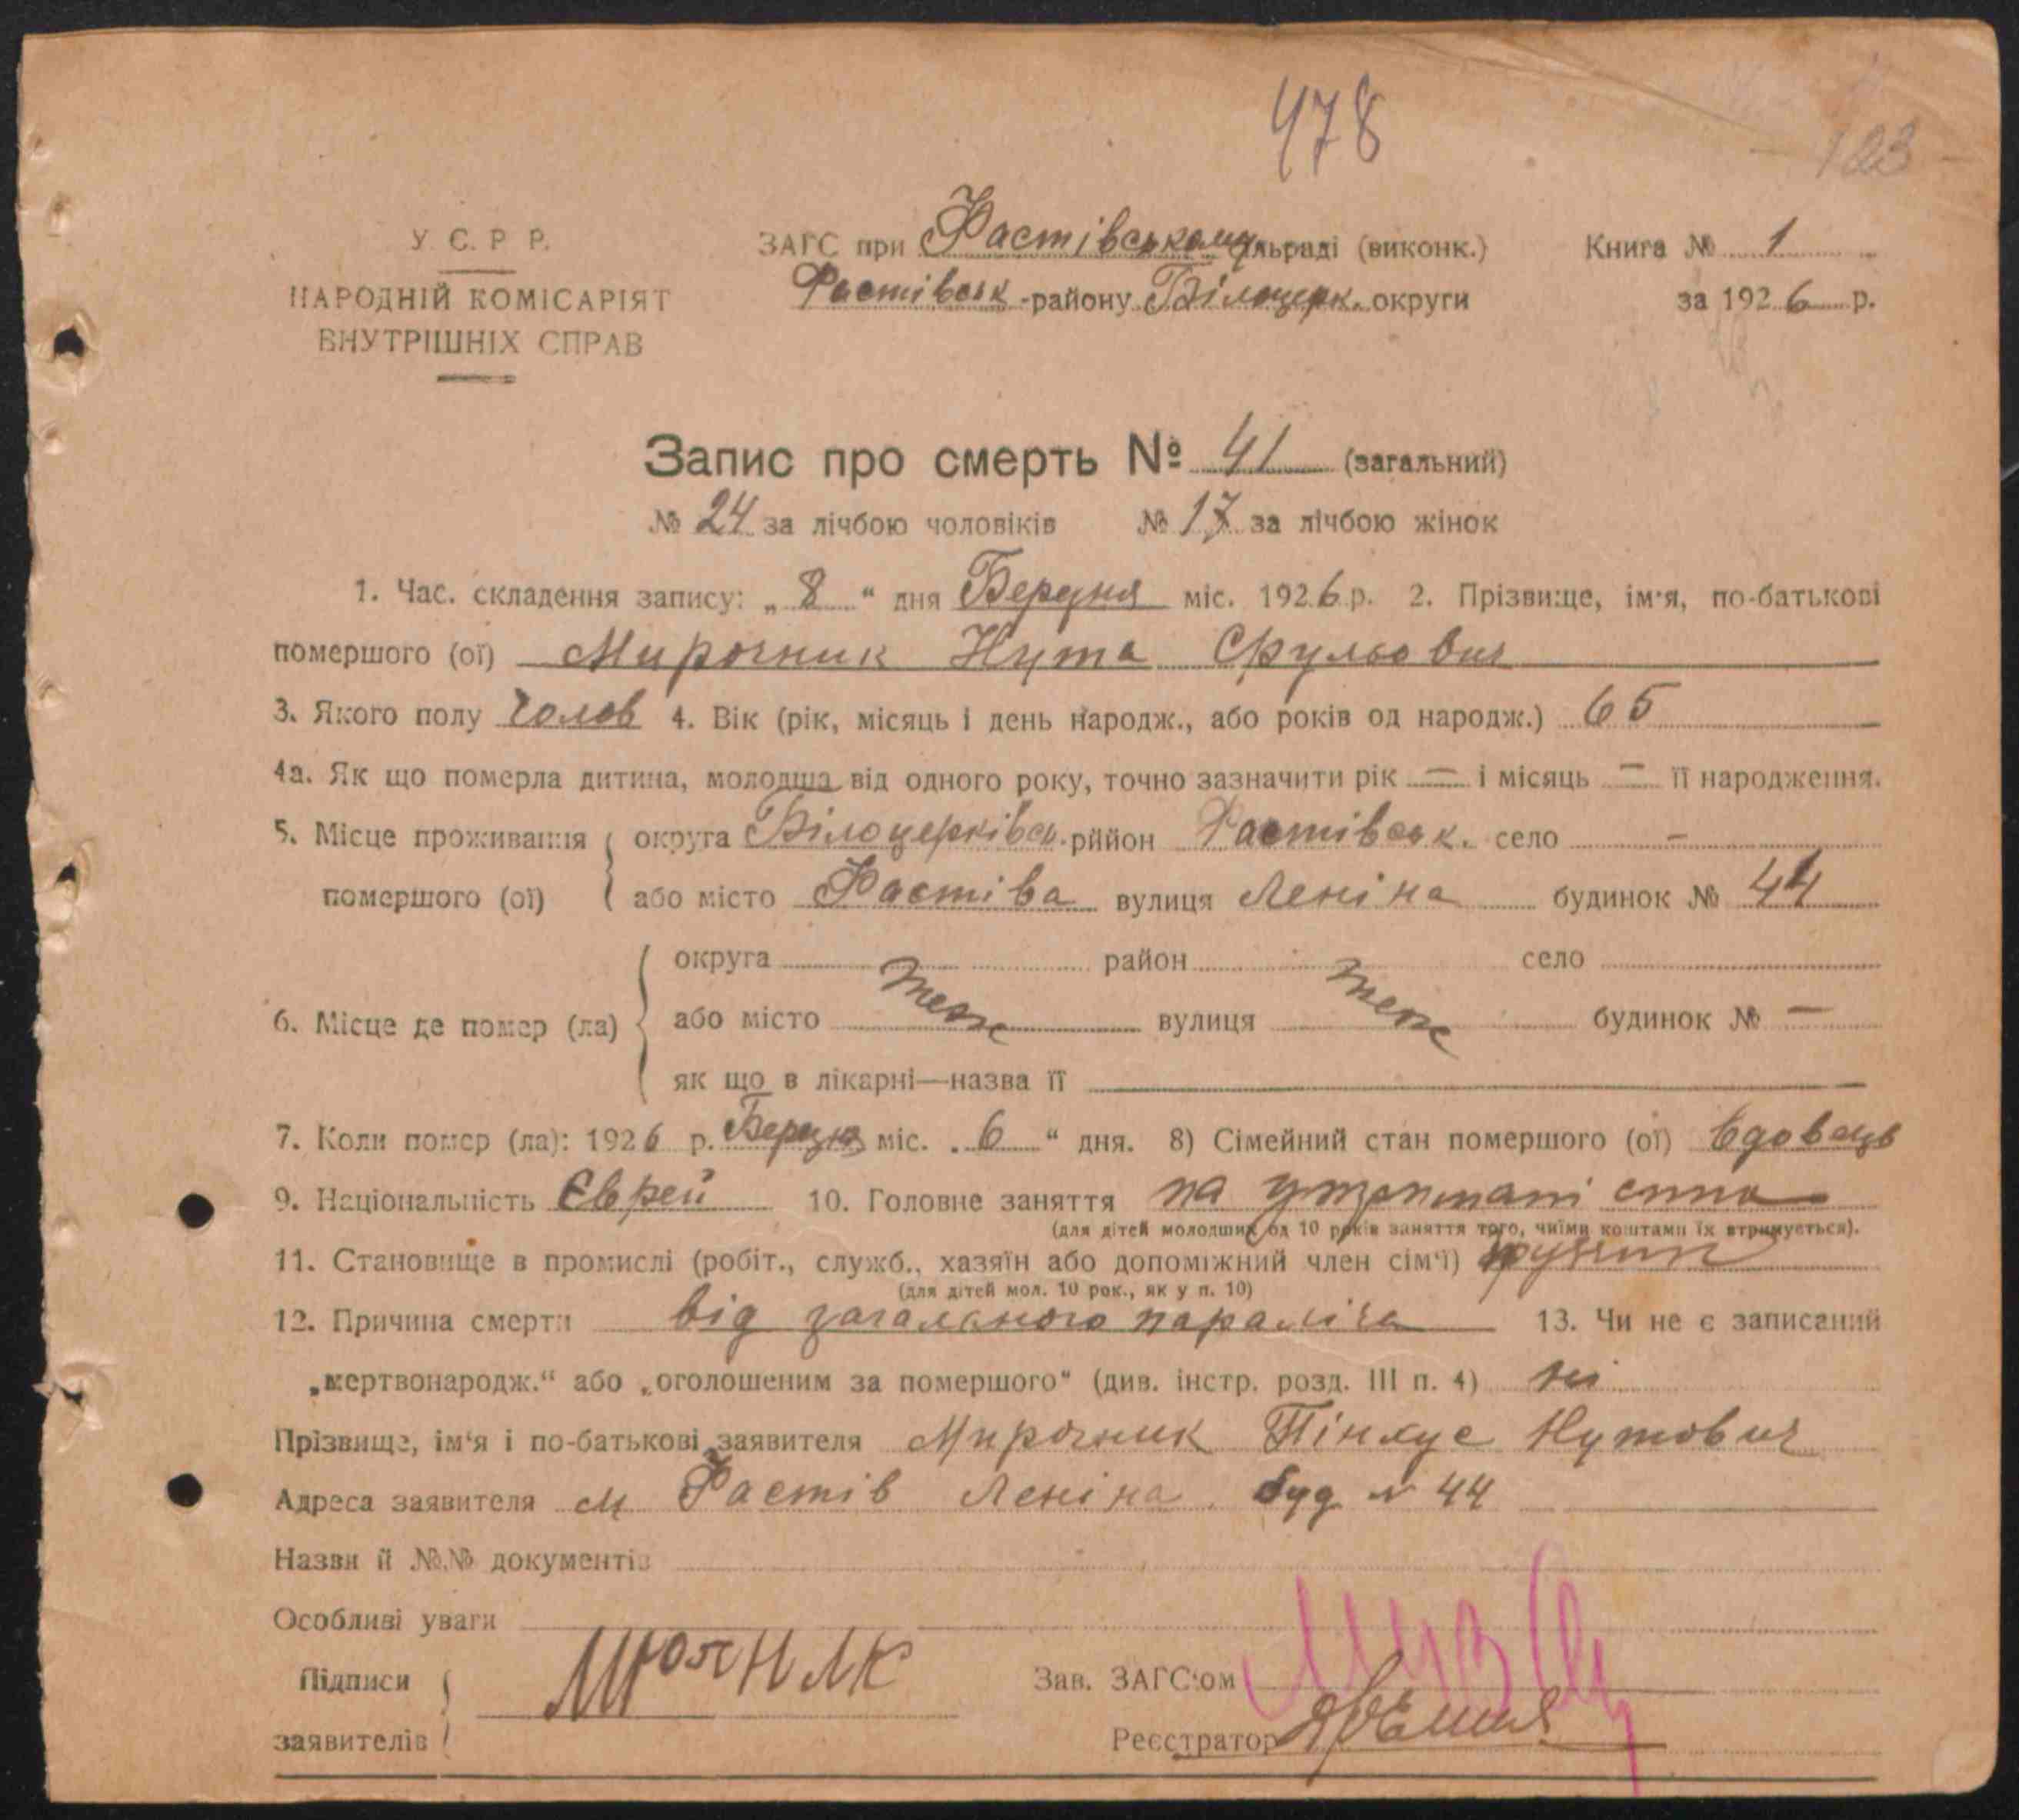 478
123
У. С. Р. Р.
НАРОДНІЙ КОМІСАРІЯТ
ВНУТРІШНІХ СПРАВ
ЗАГС при Фастівському сільраді (виконк.)
Фастівськ -району Білоцерк. округи
Книга № 1
за 1926 р.
Запис про смерть № 41 (загальний)
№ 24 за лічбою чоловіків № 17 за лічбою жінок
1. Час. складення запису: „ 8 “ дня Березня міс. 1926 р. 2. Прізвище, ім'я, по-батькові
помершого (ої) Мирочник Нута Срульович
3. Якого полу Голов 4. Вік (рік, місяць і день народж., або років од народж.) 65
4а. Як що померла дитина, молодша від одного року, точно зазначити рік — і місяць — її народження.
5. Місце проживання округа Білоцерківсь. рййон Фастівськ. село —
помершого (ої) або місто Фастіва вулиця Леніна будинок № 44
округа район село
6. Місце де помер (ла) або місто теж вулиця теж будинок № —
як що в лікарні—назва її
7. Коли помер (ла): 1926 р. Березня міс. „ 6 “ дня. 8) Сімейний стан помершого (ої) вдовець
9. Національність Єврей 10. Головне заняття на утриманні сина
(для дітей молодших од 10 років заняття того, чиїми коштами їх втримується).
11. Становище в промислі (робіт., служб., хазяїн або допоміжний член сім'ї)
(для дітей мол. 10 рок., як у п. 10)
12. Причина смерти від загального параліча 13. Чи не є записаний
„мертвонародж.“ або „оголошеним за помершого“ (див. інстр. розд. III п. 4) ні
Прізвище, ім'я і по-батькові заявителя Мирочник Пінхус Нутович
Адреса заявителя м Фастів Леніна буд № 44
Назви й №№ документів
Особливі уваги
Підписи
заявителів
Зав. ЗАГС'ом
Реєстратор